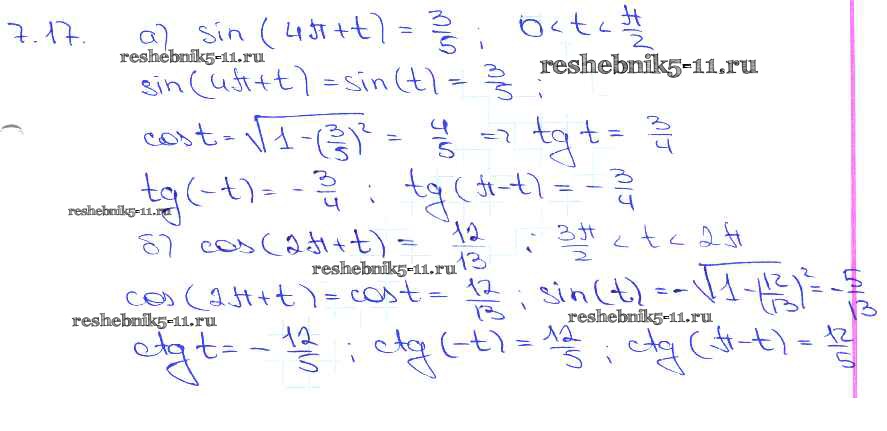 7.17. а) sin(4π+t) = 3/5 ; 0 < t < π/2
reshebnik5-11.ru
reshebnik5-11.ru
sin(4π+t) = sin(t) = 3/5 ;
cos t = √(1-(3/5)²) = 4/5 => tg t = 3/4
tg(-t) = -3/4 ; tg(π-t) = -3/4
reshebnik5-11.ru
б) cos(2π+t) = 12/13 ; 3π/2 < t < 2π
reshebnik5-11.ru
cos(2π+t) = cos t = 12/13 ; sin(t) = -√(1-(12/13)²) = -5/13
reshebnik5-11.ru
reshebnik5-11.ru
ctg t = -12/5 ; ctg(-t) = 12/5 ; ctg(π-t) = 12/5